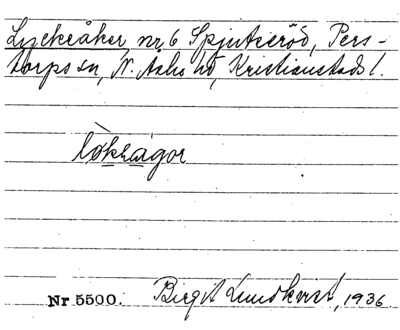 Lyckeåker, nr 6 Spjutseröd, Pers-
torps sn, N. Åsbo hd, Kristianstads l.
lòkeågor
Nr 5500. Birgit Lundkvist, 1936.